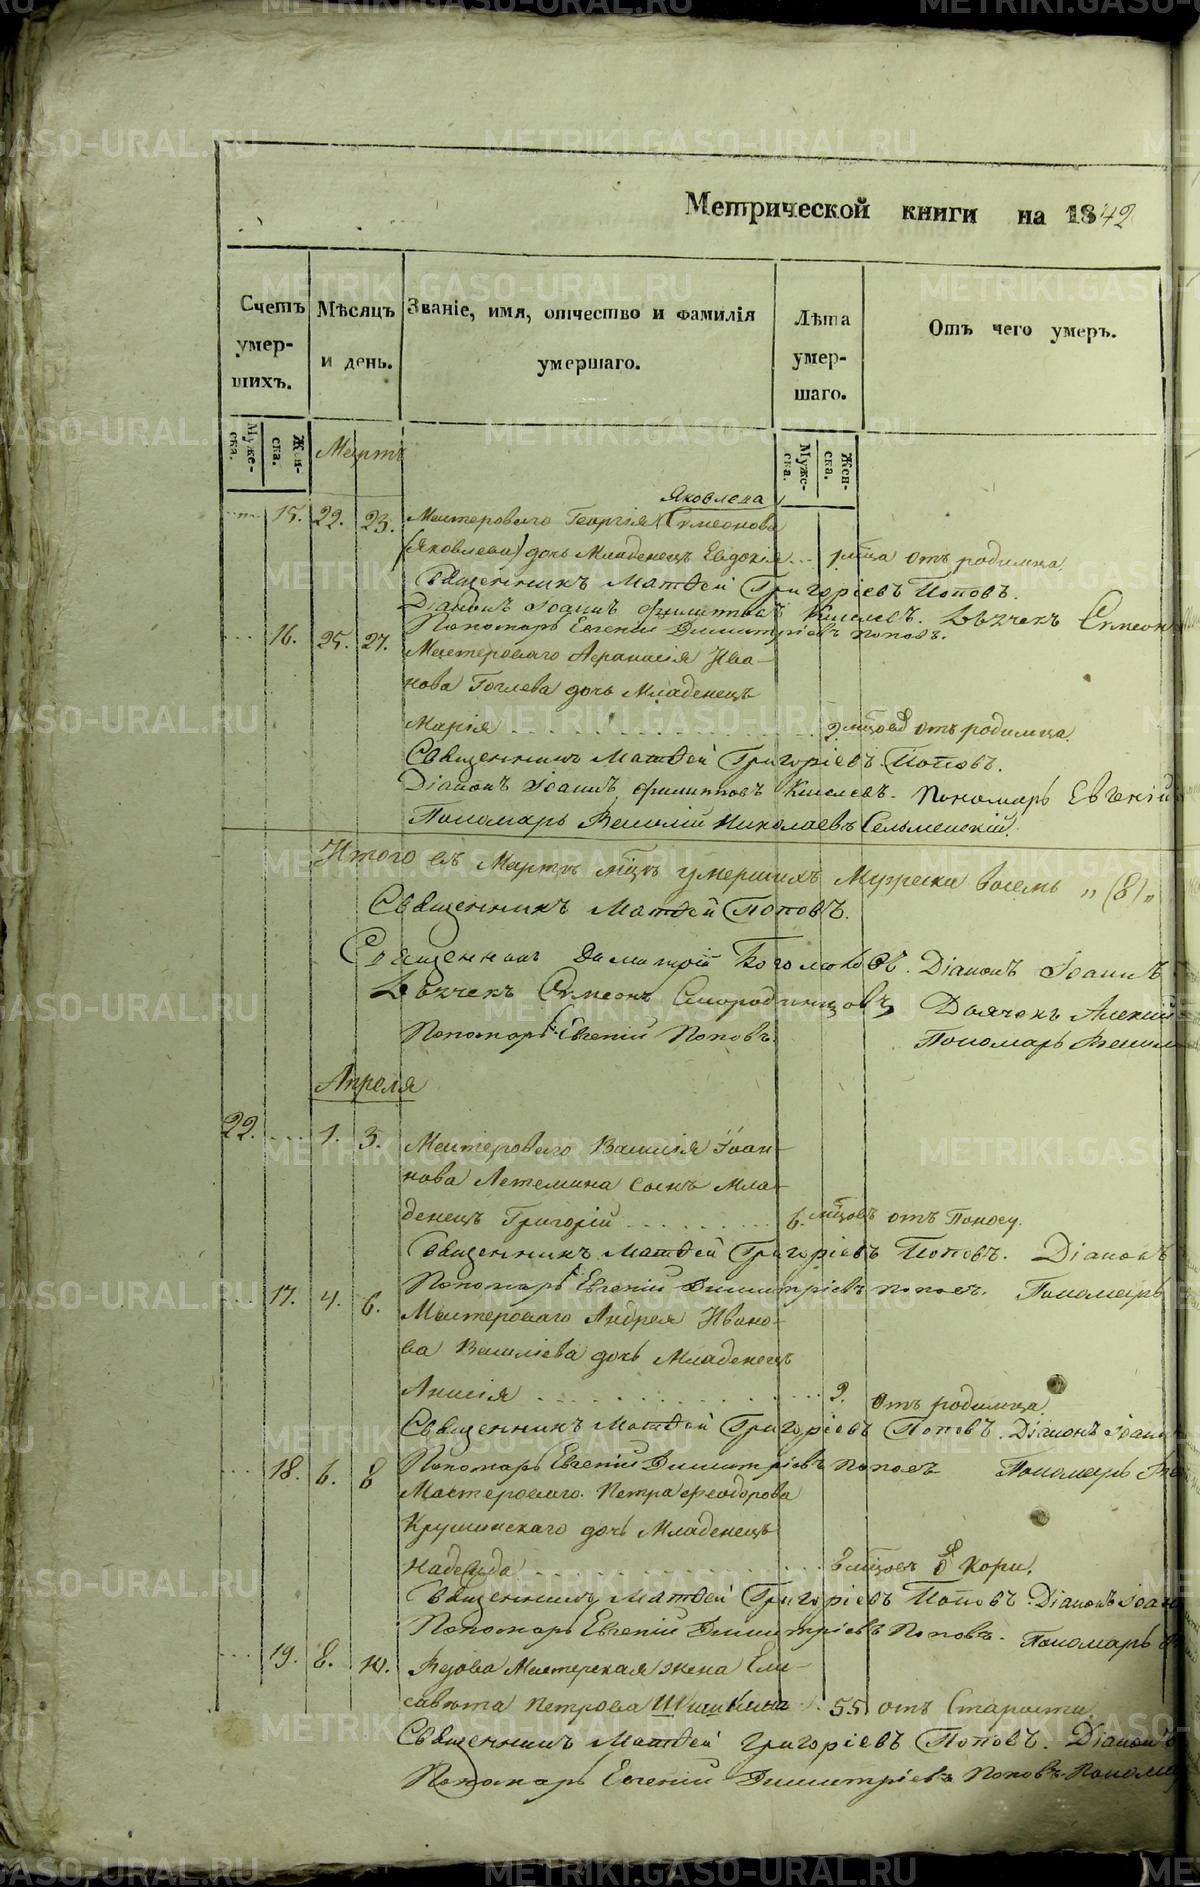 Метрической книги на 1842
Счетъ умер-шихъ.
Мѣсяцъ и день.
Званіе, имя, отчество и фамилія умершаго.
Лѣта умер-шаго.
Отъ чего умеръ.
Муже-ска.
Жен-ска.
Мартъ
Муже-ска.
Жен-ска.
Яковлева
15. 22. 23. Мастероваго Георгія Симеонова
(Яковлева) дочь Младенецъ Евдокія отъ родимца.
Священникъ Матѳей Григоріевъ Поповъ.
Діаконъ Іоаннъ Филиповъ Киселевъ. Дьячекъ Симеон
Пономарь Евгеній Димитріевъ Поповъ.
16. 25. 27. Мастероваго Аѳанасія Ива-
нова Гоглева дочь Младенецъ
Марія 2 мѣсѣцовъ отъ родимца.
Священникъ Матѳей Григоріевъ Поповъ.
Діаконъ Іоаннъ Филиповъ Киселевъ. Пономарь Евгеній
Пономарь Николаевъ Сельменскій.
Итого въ Мартѣ мѣцѣ умершихъ Мужеска восемь „ (8) „
Священникъ Матѳей Поповъ.
Священникъ Димитрій Богомоловъ. Діаконъ Іоаннъ
Дьячекъ Симеонъ Смородинцовъ Дьячокъ Алексій
Пономарь Евгеній Поповъ. Пономарь
Апреля
22. 1. 3. Мастероваго Василія Іоан-
нова Летемина сынъ Мла-
денецъ Григорій 6. мѣсцовъ отъ Поносу.
Священникъ Матѳей Григоріевъ Поповъ. Діаконъ
Пономарь Евгеній Димитріевъ Поповъ. Пономарь
17. 4. 6. Мастероваго Андрея Ивано-
ва Васильева дочь Младенецъ
Анисія 2. отъ родимца.
Священникъ Матѳей Григоріевъ Поповъ. Діаконъ Іоанн
Пономарь Евгеній Димитріевъ Поповъ Пономарь
18. 6. 8 Мастероваго Петра Феодорова
Крушинскаго дочь Младенецъ
Надежда 8 мѣсцовъ Кори.
Священникъ Матѳей Григоріевъ Поповъ. Діаконъ Іоан
Пономарь Евгеній Димитріевъ Поповъ. Пономарь
19. 8. 10. Вдова Мастерская жена Ели-
савета Петрова Шишкина 55 отъ Старости
Священникъ Матѳей Григоріевъ Поповъ. Діаконъ
Пономарь Евгеній Димитріевъ Поповъ. Пономар
METRIKI.GASO-URAL.RU